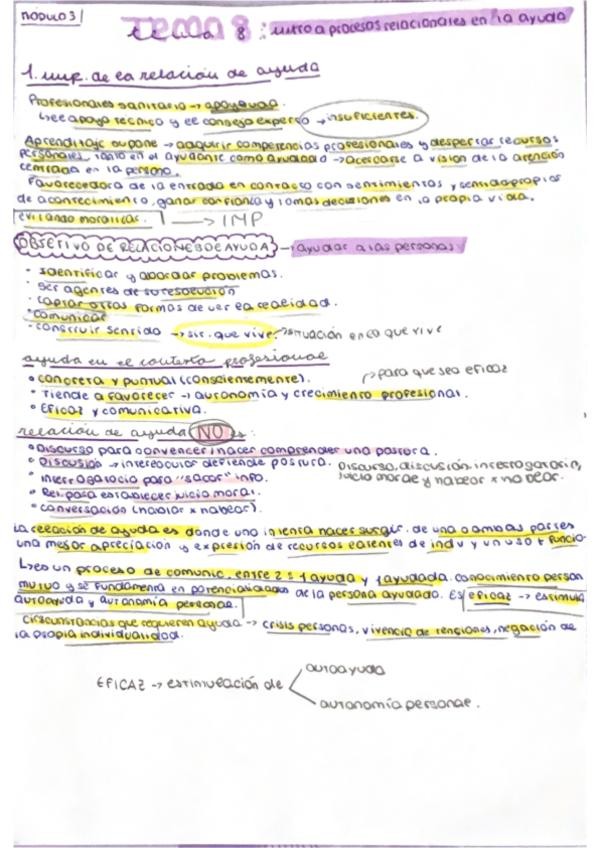 MÓDULO 3/
TEMA 8: intro a procesos relacionales en la ayuda
1. imp. de la relación de ayuda
Profesionales sanitario → apoyando
↳ el apoyo técnico y el consejo experto → insuficientes.
Aprendizaje supone → adquirir competencias profesionales y despertar recursos
personales, tanto en el ayudante como ayudado → acercarse a visión de la atención
centrada en la persona.
Favorecedora de la entrada en contacto con sentimientos y sentido propios
de acontecimiento, ganar confianza y tomas decisiones en la propia vida,
evitando moralizar. → IMP
OBJETIVO DE RELACIONES DE AYUDA → ayudar a las personas
• Identificar y abordar problemas.
• Ser agentes de su resolución
• captar otras formas de ver la realidad.
• comunicar
• construir sentido → sit. que vive. → situación en la que vive
ayuda en el contexto profesional
• concreta y puntual (conscientemente). → para que sea eficaz
• Tiende a favorecer → autonomía y crecimiento profesional.
• Eficaz y comunicativa.
relación de ayuda NO es:
• Discurso para convencer/hacer comprender una postura.
• Discusión → interlocutor defiende postura. Discurso, discusión, interrogatorio,
• Interrogatorio para "sacar" info. juicio moral y hablar x hablar.
• Rel. para establecer juicio moral.
• conversación (hablar x hablar).
La relación de ayuda es donde uno intenta hacer surgir. de una o ambas partes
una mejor apreciación y expresión de recursos latentes de indv y un uso + funcio-
↳ es un proceso de comunic. entre 2: 1 ayuda y 1 ayudada. conocimiento person
mutuo y se fundamenta en potencialidades de la persona ayudada. Es eficaz → estimula
autoayuda y autonomía personal.
Circunstancias que requieren ayuda → crisis personas, vivencia de tensiones, negación de
la propia individualidad.
EFICAZ → estimulación de
autoayuda
autonomía personal.